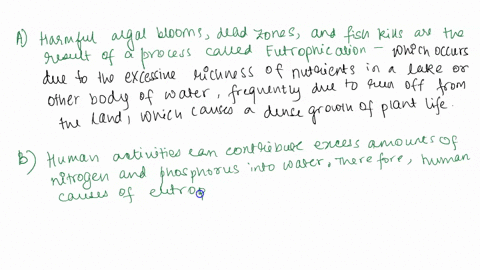 A) Harmful algal blooms, dead zones, and fish kills are the
result of a process called Eutrophication - which occurs
due to the excessive richness of nutrients in a lake or
other body of water, frequently due to run off from
the land, which causes a dense growth of plant life.
B) Human activities can contribute excess amounts of
nitrogen and phosphorus into water. Therefore, human
causes of eutrop